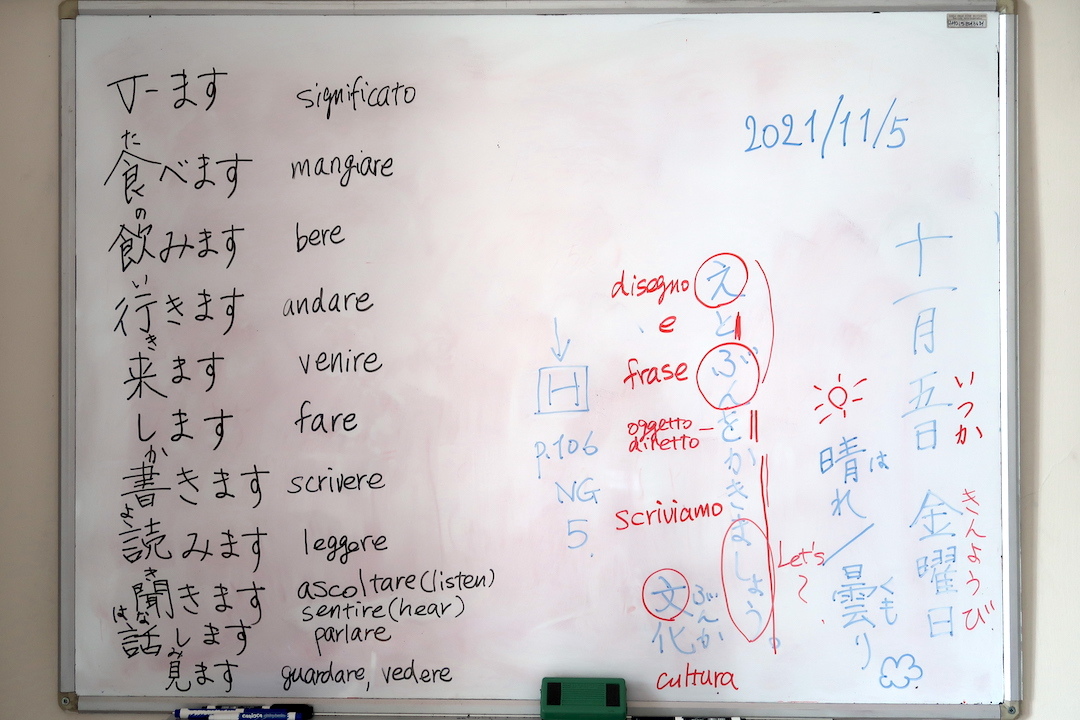 マーます significato
た
食べます mangiare
の
飲みます bere
い
行きます andare
き
来ます venire
します fare
か
書きます scrivere
よ
読みます leggere
き
聞きます ascoltare(listen)
sentire(hear)
はな
話します parlare
み
見ます guardare, vedere
2021/11/5
十一月五日 金曜日
いつか
きんようび
晴れ/曇り
は
くも
えとぶんをかきましょう。
disegno
e
frase
oggetto
diretto
scriviamo
Let's
~
文化
ぶんか
cultura
H
p.106
NG
5.